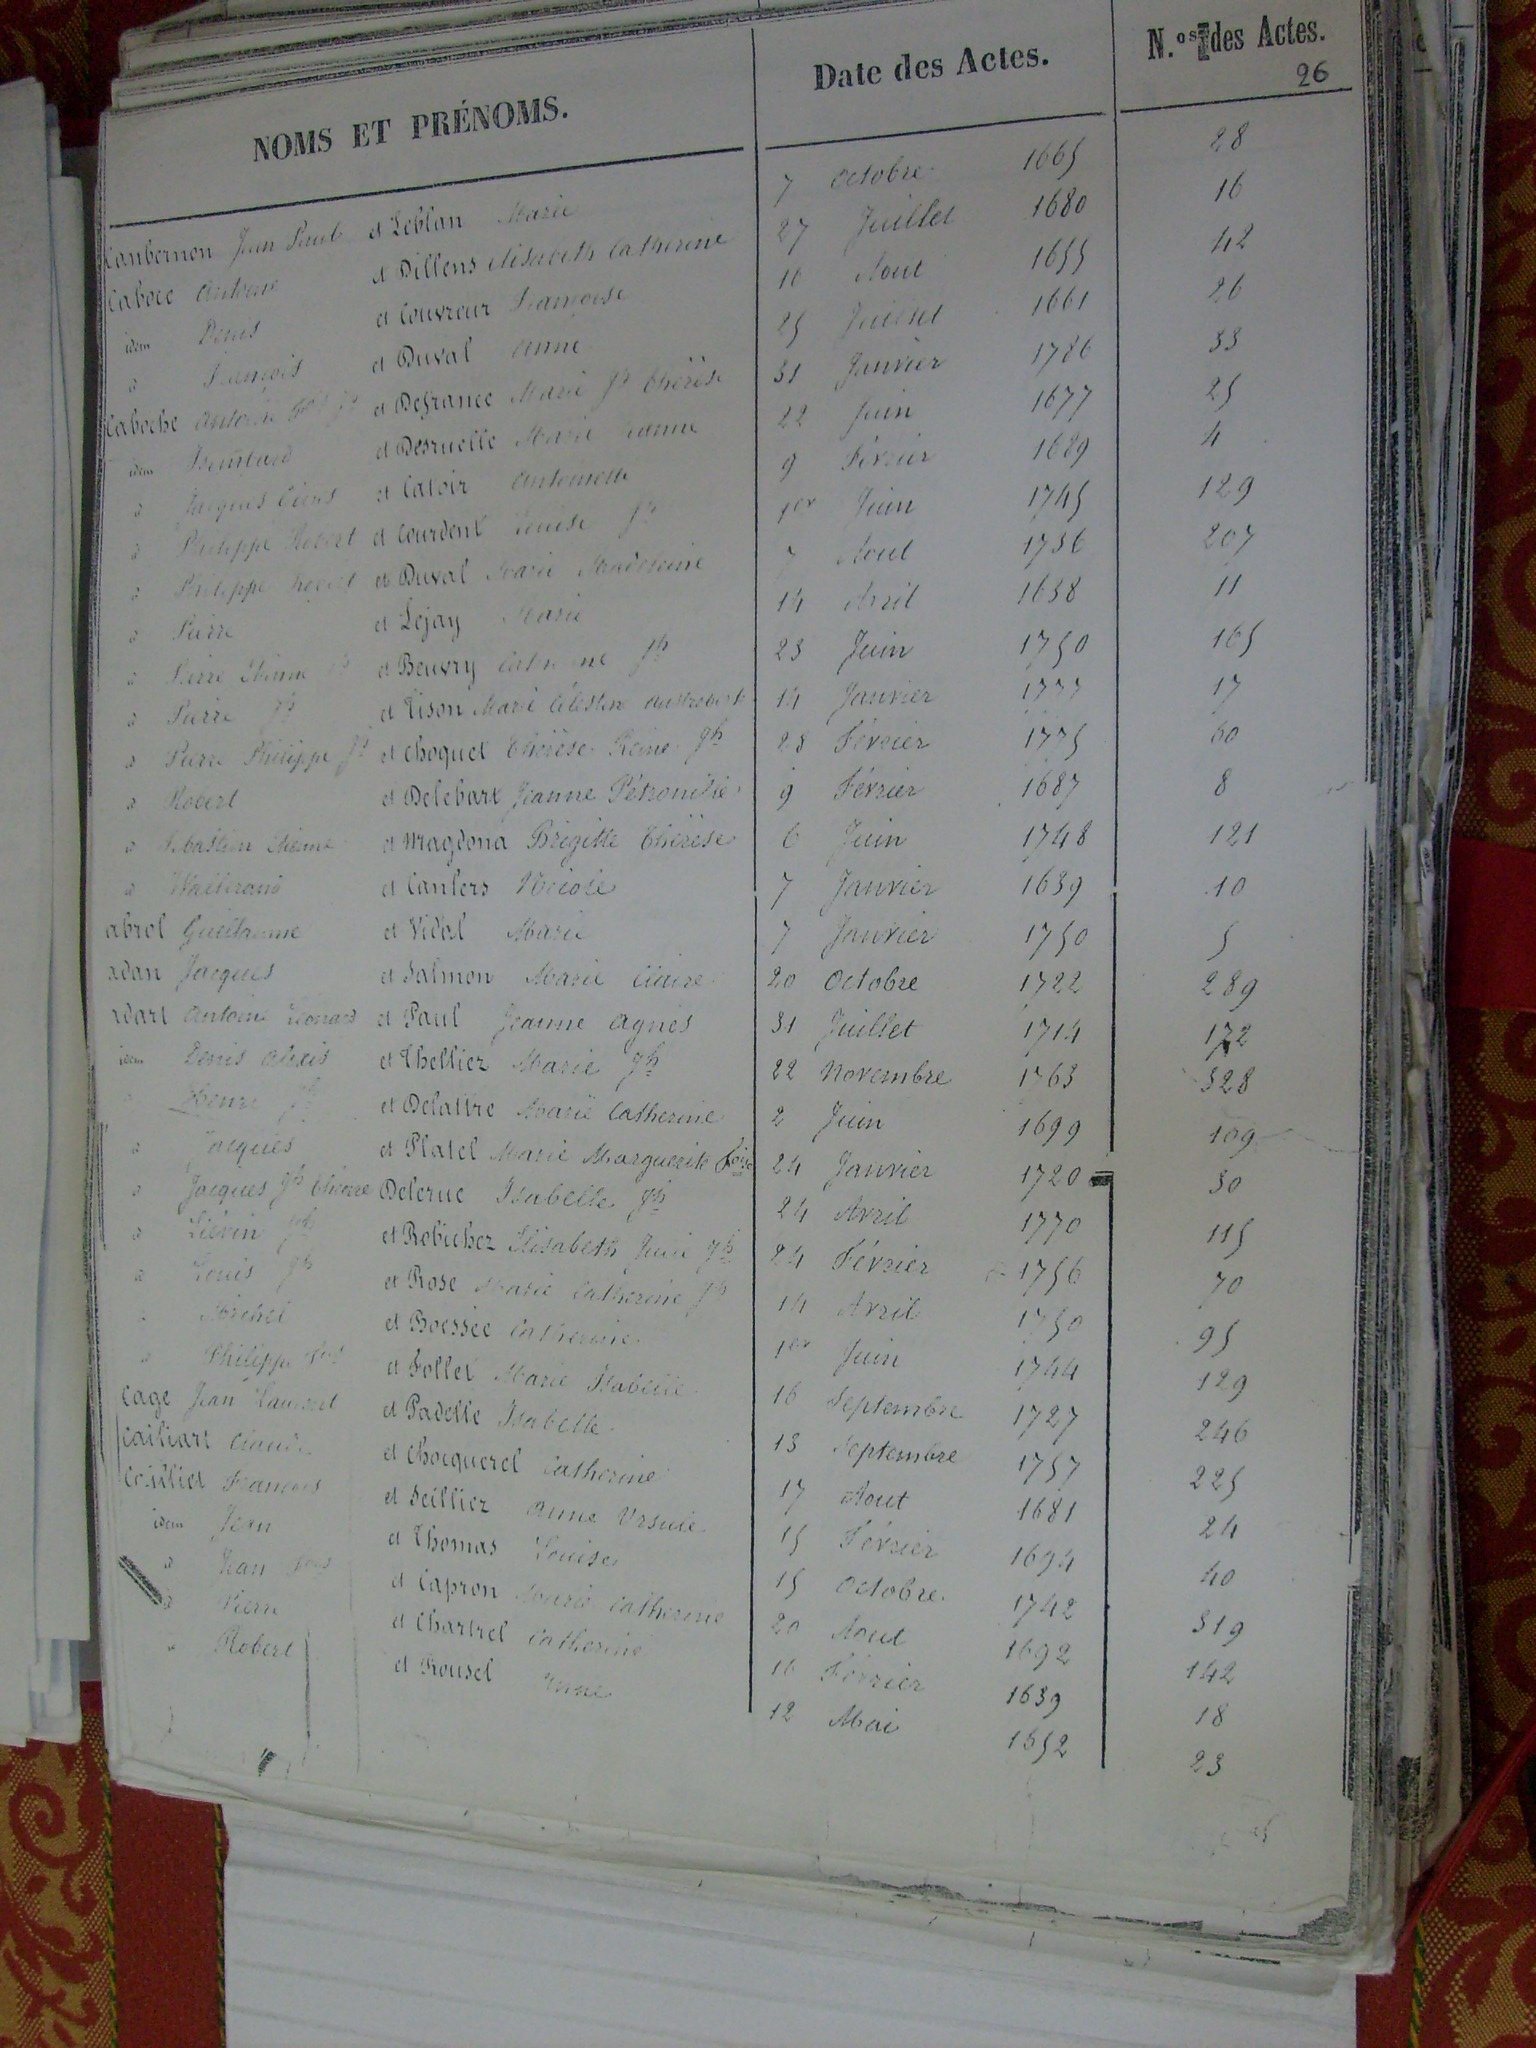 NOMS ET PRÉNOMS. Date des Actes. N.os des Actes.
26
Canbernon Jean Paul et Leblan Marie 7 Octobre 1665 28
Caboce Antoine et Dillens Elisabeth Catherine 27 Juillet 1680 16
idem Denis et Couvreur Françoise 16 Aout 1655 42
d François et Duval Anne 25 Juillet 1661 26
Caboche Antoine et Defrance Marie Jh Thérèse 31 Janvier 1786 33
idem et Desruelle Marie Jeanne 22 Juin 1677 25
d Jacques et Catoir Antoinette 9 Février 1689 4
d Philippe Robert et Courdent Louise Jh 1er Juin 1745 129
d Philippe Robert et Duval Marie Madeleine 7 Aout 1736 207
d Pierre et Lejay Marie 14 Avril 1638 11
d Pierre Etienne et Beuvry Catherine Jh 23 Juin 1750 165
d Pierre Jh et Tison Marie Célestine Austroberte 14 Janvier 1777 17
d Pierre Philippe Jh et Choquet Thérèse Reine Jh 28 Février 1775 60
d Robert et Delebarx Jeanne Pétronille 9 Février 1687 8
d Sébastien Etienne et Magdona Brigitte Thérèse 6 Juin 1748 121
d et Canlers Nicole 7 Janvier 1639 10
abrol Guillaume et Vidal Marie 7 Janvier 1750 5
adan Jacques et Salmon Marie Claire 20 Octobre 1722 289
adart Antoine Léonard et Paul Jeanne Agnès 31 Juillet 1714 172
idem Denis Alexis et Thellier Marie Jh 22 Novembre 1763 328
Henri Jh et Delattre Marie Catherine 2 Juin 1699 109
d Jacques et Platel Marie Marguerite foise 24 Janvier 1720 30
d Jacques Jh Thérèse Delerue Isabelle Jh 24 Avril 1770 115
d Liévin Jh et Robichez Elisabeth Julie Jh 24 Février 1756 70
d Louis Jh et Rose Marie Catherine Jh 14 Avril 1750 95
Michel et Boessée Catherine 1er Juin 1744 129
d Philippe fois et Follet Marie Isabelle 16 Septembre 1727 246
Cage Jean Laurent et Padelle Isabelle 13 Septembre 1757 225
Cailiart Claude et Chocquerel Catherine 17 Aout 1681 24
Cailliet François et Seillier Anne Ursule 15 Février 1694 40
idem Jean et Thomas Louise 15 Octobre 1742 319
d Jean fois et Capron Marie Catherine 20 Aout 1692 142
d Pierre et Chartrel Catherine 16 Février 1639 18
Robert et Rousel Anne 12 Mai 1652 23